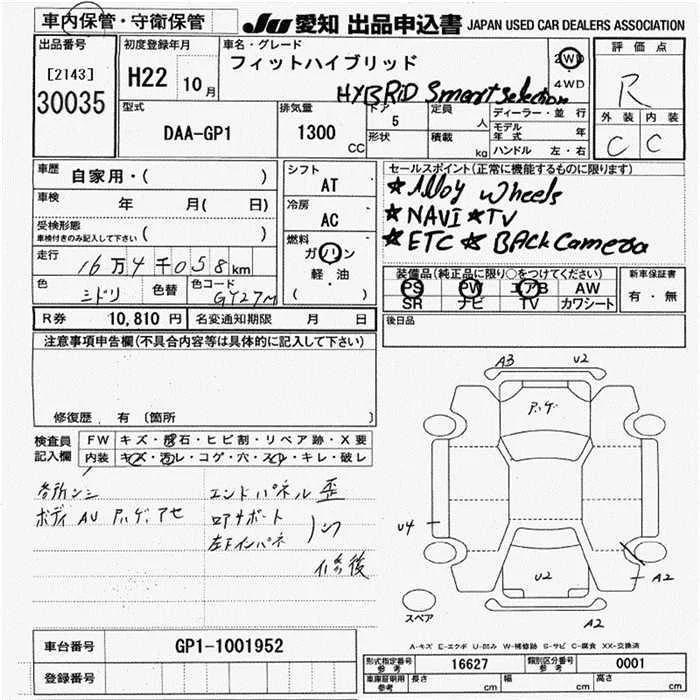 車内保管・守衛保管
JU 愛知 出品申込書 JAPAN USED CAR DEALERS ASSOCIATION
出品番号
[2143]
30035
初度登録年月
H22 10月
車名・グレード
フィットハイブリッド
HYBRiD Smart Selection
2WD
4WD
評価点
R
外装 内装
C C
型式
DAA-GP1
排気量
1300 CC
ドア
5
形状
定員
人
積載
kg
ディーラー・並行
モデル年式 年
ハンドル 左・右
車歴
自家用・( )
車検
年 月( 日)
受検形態
車検付きのみ記入して下さい ( )
走行
16万4千058km
色
ミドリ
色替
色コード
GY27M
シフト
AT
冷房
AC
燃料
ガソリン
軽・油
( )
セールスポイント(正常に機能するものに限ります)
★Alloy wheels
★NAVI ★TV
★ETC ★ BACK Camera
装備品(純正品に限り○をつけてください)
PS PW エアB AW
SR ナビ TV カワシート
新車保証書
有・無
後日品
R券 10,810円 名変通知期限 月 日
注意事項申告欄(不具合内容等は具体的に記入して下さい)
修復歴 有 〔箇所
検査員記入欄
FW キズ・飛石・ヒビ割・リペア跡・X要
内装 キズ・汚レ・コゲ・穴・スレ・キレ・破レ
各所シミ
ボディ AU アハゲ、アセ
エンドパネル歪
ロアサポート
左下インパネ
修後
A3 U2
アハゲ
U4
U2
A2
A2
スペア
A-キズ E-エクボ U-凹み W-補修跡 S-サビ C-腐食 XX-交換済
車台番号 GP1-1001952
登録番号
形式指定番号参考 16627 類別区分番号参考 0001
車庫証明用参考 長さ cm 幅 cm 高さ cm